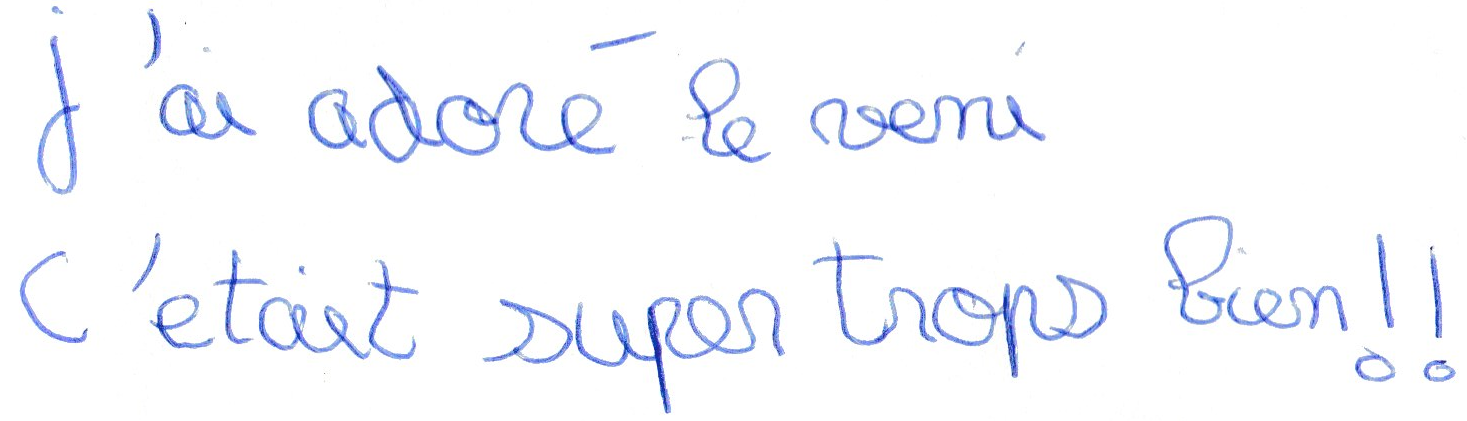 j'ai adoré le veni
C'etait super trops bien!!